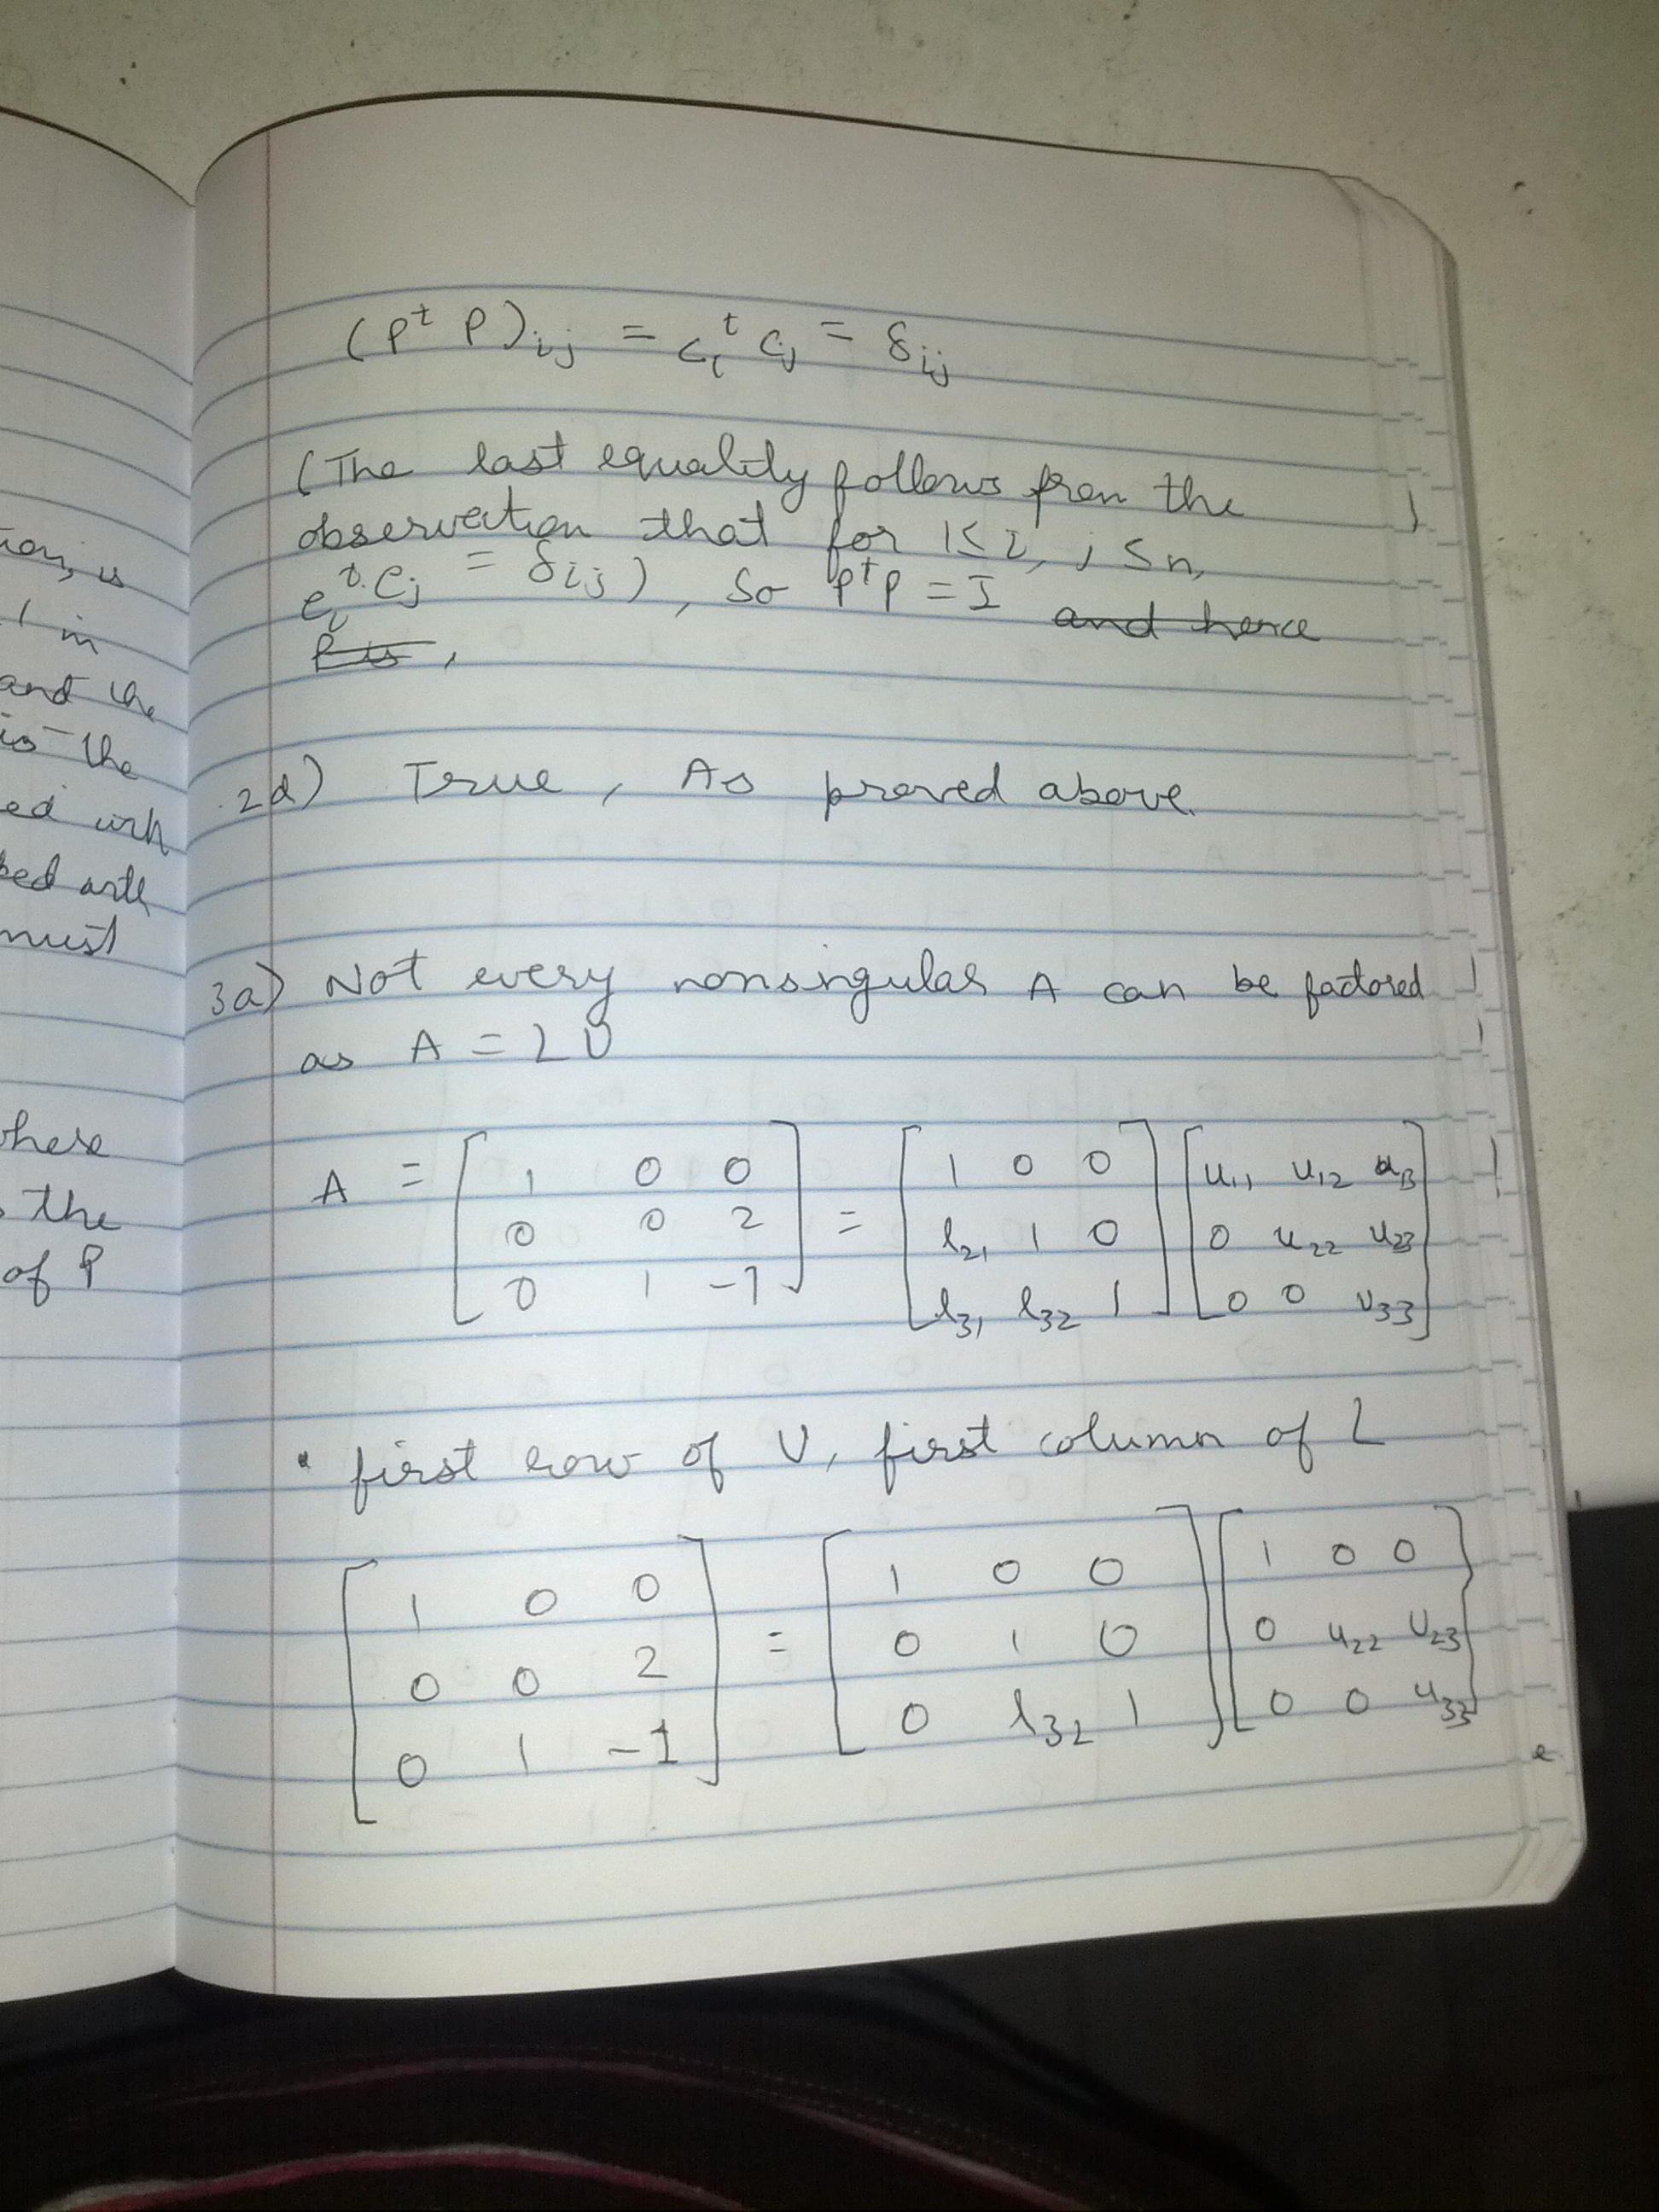 ion, is
1 in
and the
is the
ed with
ped with
must
where
the
of P
(P^t P)_ij = c_i^t c_j = δ_ij
(The last equality follows from the
observation that for 1 ≤ i, j ≤ n,
e_i^t e_j = δ_ij), So P^t P = I and hence
P is,
2d) True, As proved above.
3a) Not every nonsingular A can be factored
as A = LU
A = [1 0 0; 0 0 2; 0 1 -1] = [1 0 0; l_21 1 0; l_31 l_32 1] [u_11 u_12 u_13; 0 u_22 u_23; 0 0 u_33]
• first row of U, first column of L
[1 0 0; 0 0 2; 0 1 -1] = [1 0 0; 0 1 0; 0 l_32 1] [1 0 0; 0 u_22 u_23; 0 0 u_33]